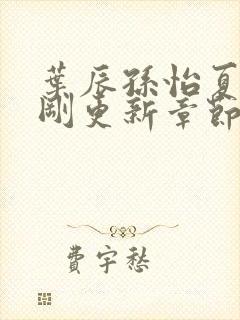 葉辰孫怡夏
剛更新章節
費宇愁